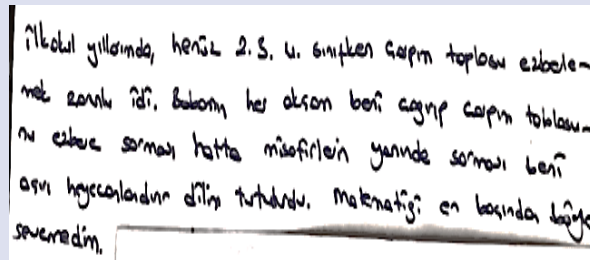 ilkokul yıllarımda, henüz 2. 3. 4. sınıfken çarpım toplosu ezbele-
mek zorunlu idi. Babamın her akşam beni çağırıp çarpım toblosu-
nu ezbere sorması hatta misafirlerin yanında sorması beni
aşırı heyecanlandırır dilim tutulurdu. Matematiği en başından böyle
sevemedim.